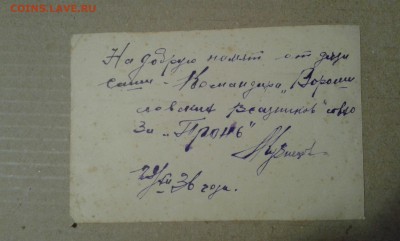 COINS.LAVE.RU
На добрую память от
Командира „Вороши
ловских Всадников"
За „Пронь"
29/XII 36 года.